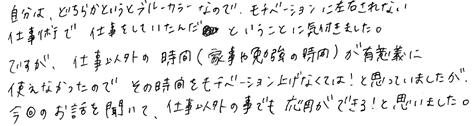 自分は、どちらかというとブルーカラーなので、モチベーションに左右されない
仕事術で仕事をしていたんだということに気付きました。
ですが、仕事以外の時間(家事や勉強の時間)が有意義に
使えなかったのでその時間をモチベーション上げなくては!と思っていましたが、
今回のお話を聞いて、仕事以外の事でも応用ができる!と思いました。